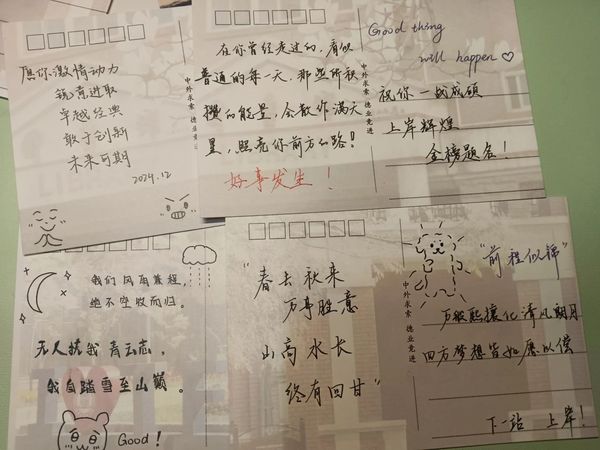 愿你激情动力
锐意进取
卓越经典
敢于创新
未来可期
2024.12
中外求索 德业竞进
在你曾经走过的,看似
普通的每一天,那些所积
攒的能量,会散作满天
星,照亮你前方的路!
好事发生!
中外求索 德业竞进
Good thing
will happen
祝你一战成硕
上岸辉煌
金榜题名!
我们风雨兼程,
绝不空收而归。
无人扰我青云志,
我自踏雪至山巅。
Good!
"春去秋来
万事胜意
山高水长
终有回甘"
中外求索 德业竞进
"前程似锦"
万般熙攘化清风朗月
四方梦想皆如愿以偿
下一站 上岸!